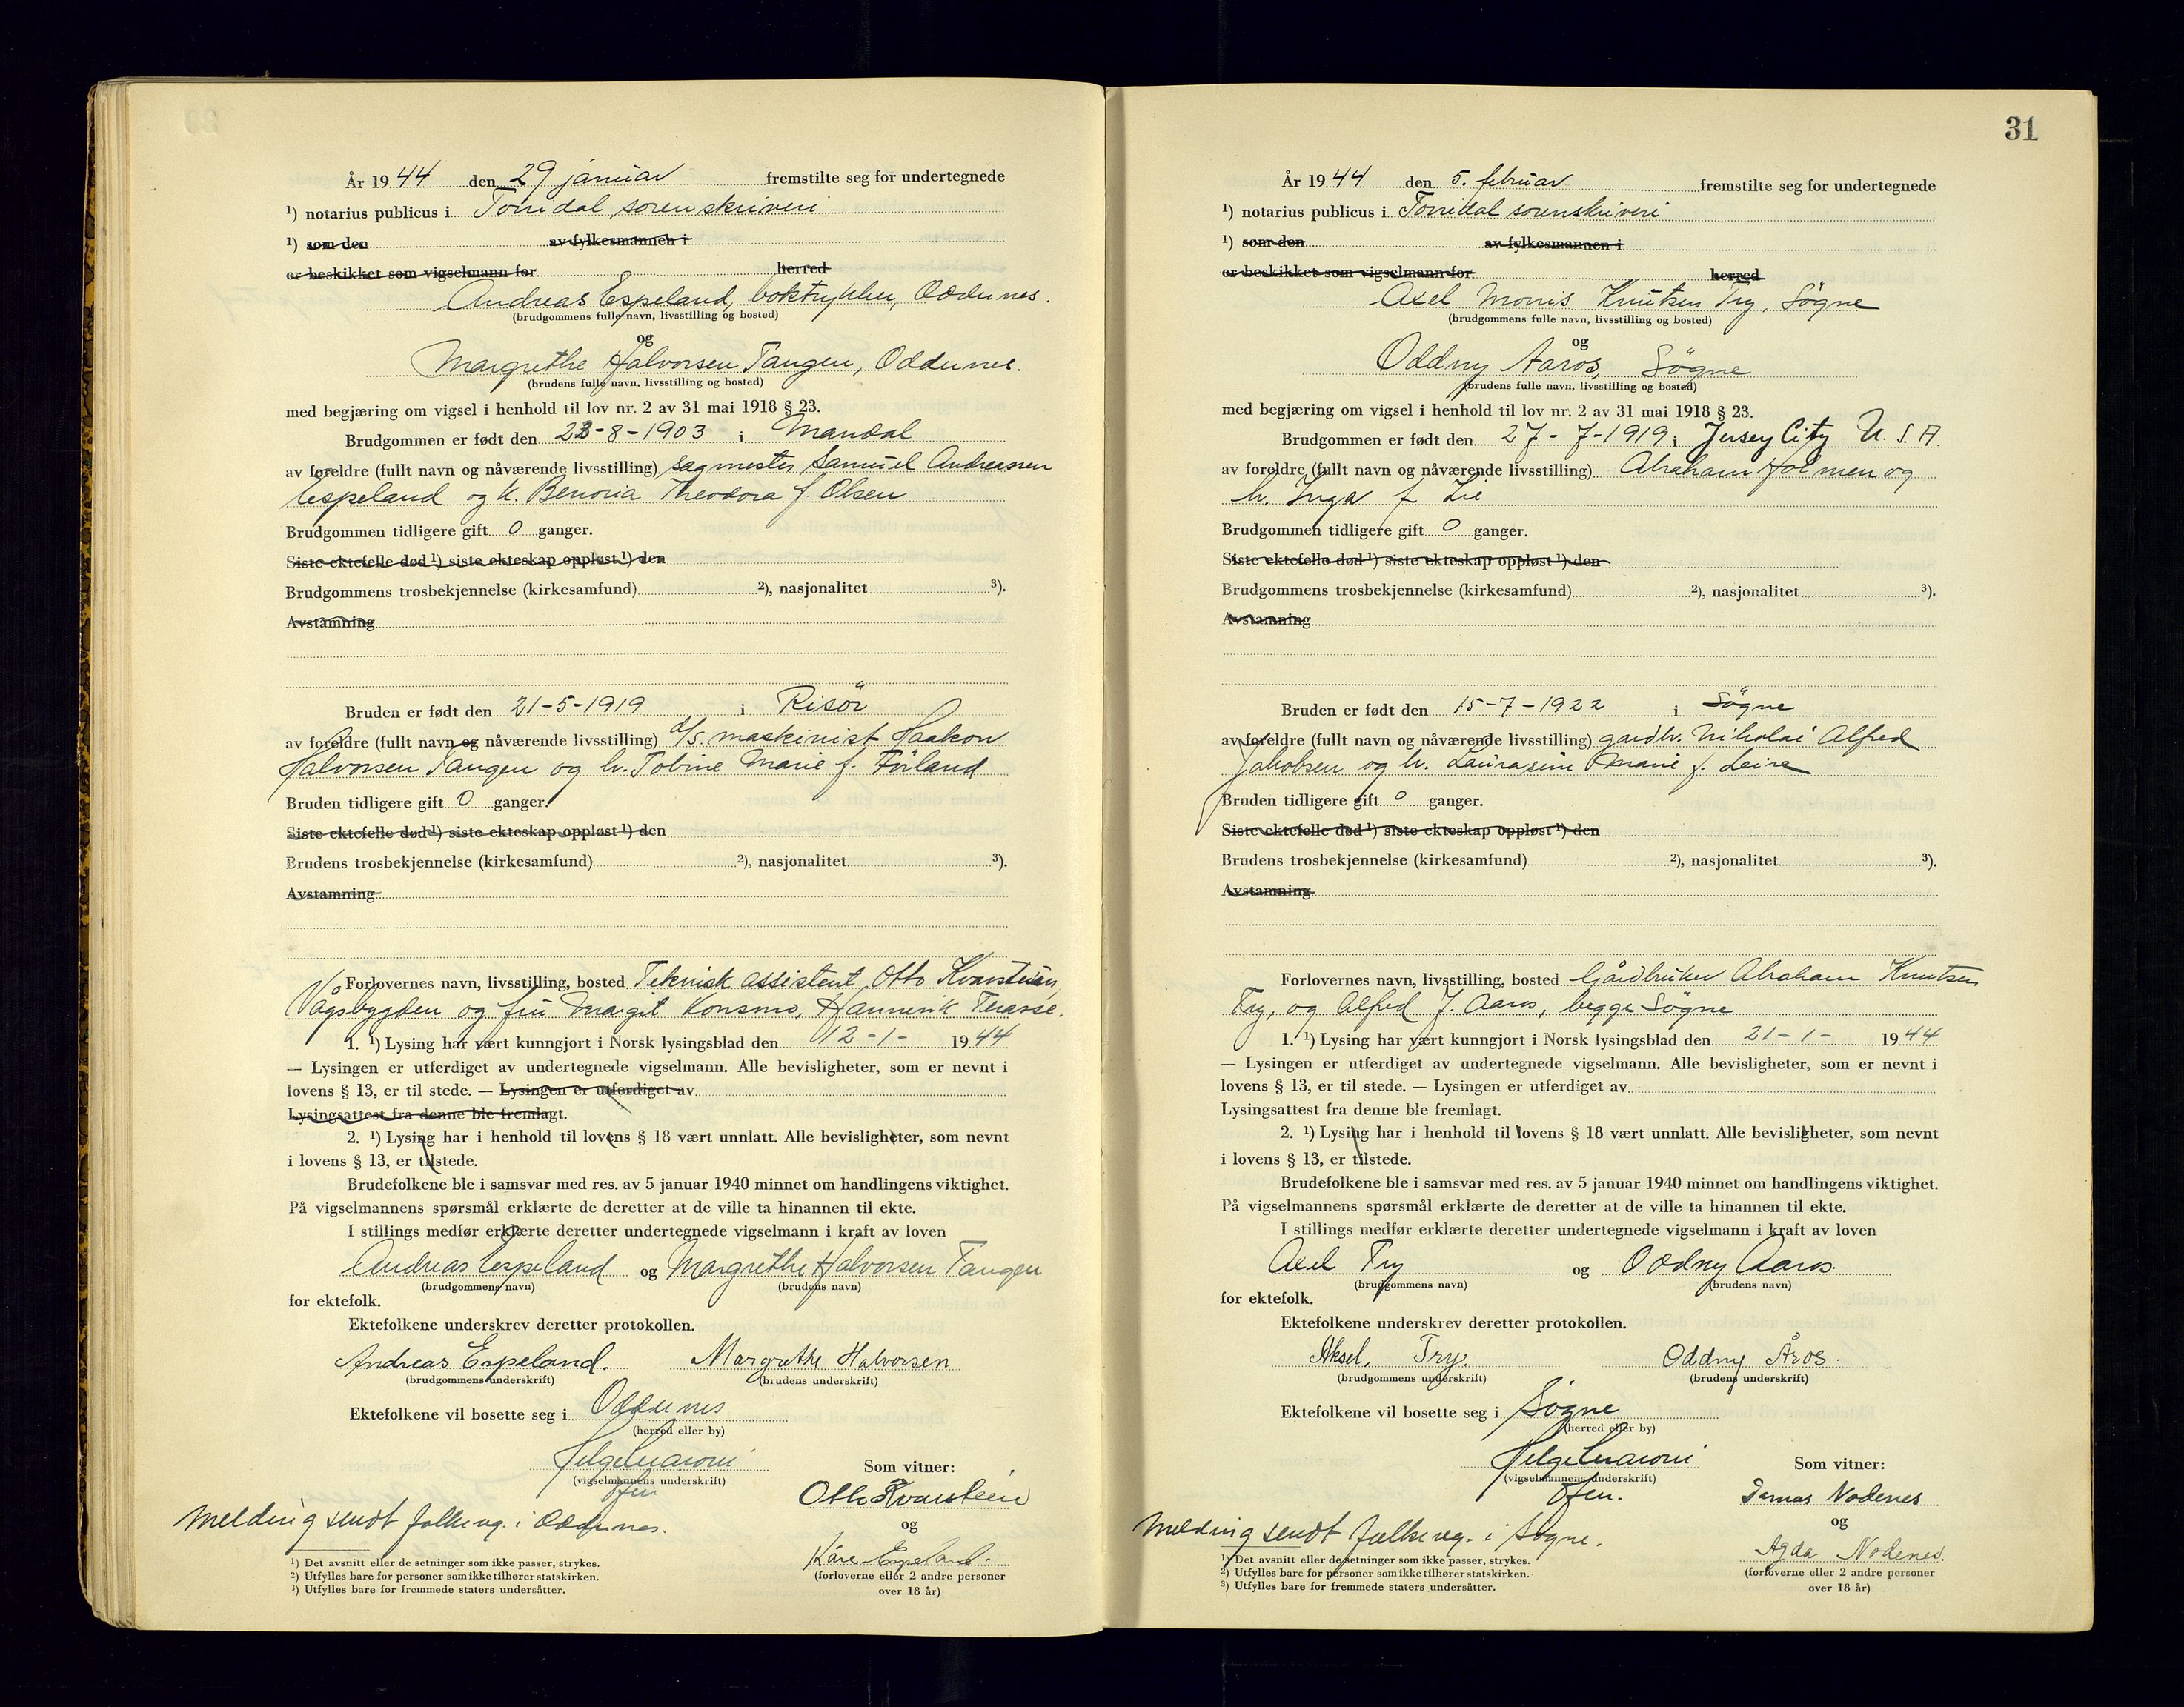 År 1944 den 29 januar fremstilte seg for undertegnede
¹) notarius publicus i Torridal sorenskriveri
¹) som den av fylkesmannen i
er beskikket som vigselmann for herred
Andreas Espeland, boktrykker, Oddernes.
(brudgommens fulle navn, livsstilling og bosted)
og
Margrethe Halvorsen Tangen, Oddernes.
(brudens fulle navn, livsstilling og bosted)
med begjæring om vigsel i henhold til lov nr. 2 av 31 mai 1918 § 23.
Brudgommen er født den 23-8-1903 i Mandal
av foreldre (fullt navn og nåværende livsstilling) sagmester Samuel Andreassen
Espeland og h. Benoria Theodora f. Olsen
Brudgommen tidligere gift 0 ganger.
Siste ektefelle død ¹) siste ekteskap oppløst ¹) den
Brudgommens trosbekjennelse (kirkesamfund) ²), nasjonalitet ³).
Avstamning
Bruden er født den 21-5-1919 i Risör
av foreldre (fullt navn og nåværende livsstilling) d/s. maskinist Haakon
Halvorsen Tangen og h. Tobine Marie f. Förland
Bruden tidligere gift 0 ganger.
Siste ektefelle død ¹) siste ekteskap oppløst ¹) den
Brudens trosbekjennelse (kirkesamfund) ²), nasjonalitet ³).
Avstamning
Forlovernes navn, livsstilling, bosted Teknisk assistent Otto Kvarstein,
Vågsbygden og fru Margit Konsmo, Hannevik Terasse.
1. ¹) Lysing har vært kunngjort i Norsk lysingsblad den 12-1- 1944
— Lysingen er utferdiget av undertegnede vigselmann. Alle bevisligheter, som er nevnt i
lovens § 13, er til stede. — Lysingen er utferdiget av
Lysingsattest fra denne ble fremlagt.
2. ¹) Lysing har i henhold til lovens § 18 vært unnlatt. Alle bevisligheter, som nevnt
i lovens § 13, er tilstede.
Brudefolkene ble i samsvar med res. av 5 januar 1940 minnet om handlingens viktighet.
På vigselmannens spørsmål erklærte de deretter at de ville ta hinannen til ekte.
I stillings medfør erklærte deretter undertegnede vigselmann i kraft av loven
Andreas Espeland og Margrethe Halvorsen Tangen
(brudgommens navn) (brudens navn)
for ektefolk.
Ektefolkene underskrev deretter protokollen.
Andreas Espeland. Margrethe Halvorsen
(brudgommens underskrift) (brudens underskrift)
Ektefolkene vil bosette seg i Oddernes
(herred eller by)
(vigselmannens underskrift) Som vitner:
Otto Kvarstein
Melding sendt folkereg. i Oddernes. og
Kåre Espeland.
(forloverne eller 2 andre personer
over 18 år)
¹) Det avsnitt eller de setninger som ikke passer, strykes.
²) Utfylles bare for personer som ikke tilhører statskirken.
³) Utfylles bare for fremmede staters undersåtter.
31
År 1944 den 5. februar fremstilte seg for undertegnede
¹) notarius publicus i Torridal sorenskriveri
¹) som den av fylkesmannen i
er beskikket som vigselmann for herred
Axel Morris Knutsen Try, Søgne
(brudgommens fulle navn, livsstilling og bosted)
og
Oddny Aaros, Søgne
(brudens fulle navn, livsstilling og bosted)
med begjæring om vigsel i henhold til lov nr. 2 av 31 mai 1918 § 23.
Brudgommen er født den 27-7-1919 i Jersey City U.S.A.
av foreldre (fullt navn og nåværende livsstilling) Abraham Holmen og
h. Inga f. Lie
Brudgommen tidligere gift 0 ganger.
Siste ektefelle død ¹) siste ekteskap oppløst ¹) den
Brudgommens trosbekjennelse (kirkesamfund) ²), nasjonalitet ³).
Avstamning
Bruden er født den 15-7-1922 i Søgne
av foreldre (fullt navn og nåværende livsstilling) gardbr. Nikolai Alfred
Jakobsen og h. Laurasine Marie f. Leire
Bruden tidligere gift 0 ganger.
Siste ektefelle død ¹) siste ekteskap oppløst ¹) den
Brudens trosbekjennelse (kirkesamfund) ²), nasjonalitet ³).
Avstamning
Forlovernes navn, livsstilling, bosted Gårdbruker Abraham Knutsen
Try, og Alfred J. Aaros, begge Søgne
1. ¹) Lysing har vært kunngjort i Norsk lysingsblad den 21-1- 1944
— Lysingen er utferdiget av undertegnede vigselmann. Alle bevisligheter, som er nevnt i
lovens § 13, er til stede. — Lysingen er utferdiget av
Lysingsattest fra denne ble fremlagt.
2. ¹) Lysing har i henhold til lovens § 18 vært unnlatt. Alle bevisligheter, som nevnt
i lovens § 13, er tilstede.
Brudefolkene ble i samsvar med res. av 5 januar 1940 minnet om handlingens viktighet.
På vigselmannens spørsmål erklærte de deretter at de ville ta hinannen til ekte.
I stillings medfør erklærte deretter undertegnede vigselmann i kraft av loven
Axel Try og Oddny Aaros.
(brudgommens navn) (brudens navn)
for ektefolk.
Ektefolkene underskrev deretter protokollen.
Aksel Try. Oddny Åros.
(brudgommens underskrift) (brudens underskrift)
Ektefolkene vil bosette seg i Søgne
(herred eller by)
(vigselmannens underskrift) Som vitner:
Nodenes
Melding sendt folkereg. i Søgne. og
Agda Nodenes.
(forloverne eller 2 andre personer
over 18 år)
¹) Det avsnitt eller de setninger som ikke passer, strykes.
²) Utfylles bare for personer som ikke tilhører statskirken.
³) Utfylles bare for fremmede staters undersåtter.